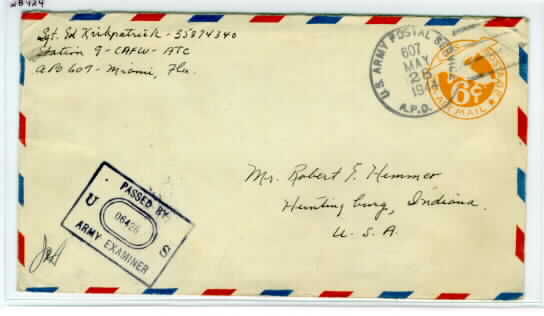 28424
Sgt. Ed Kirkpatrick - 35874340
Station 9 - CAFW - ATC
APO 607 - Miami, Fla.
U.S. ARMY POSTAL SERVICE
607
MAY
26
1944
A.P.O.
6¢
AIR MAIL
Mr. Robert E. Hemmer
Huntingburg, Indiana.
U. S. A.
PASSED BY
U 06426 S
ARMY EXAMINER